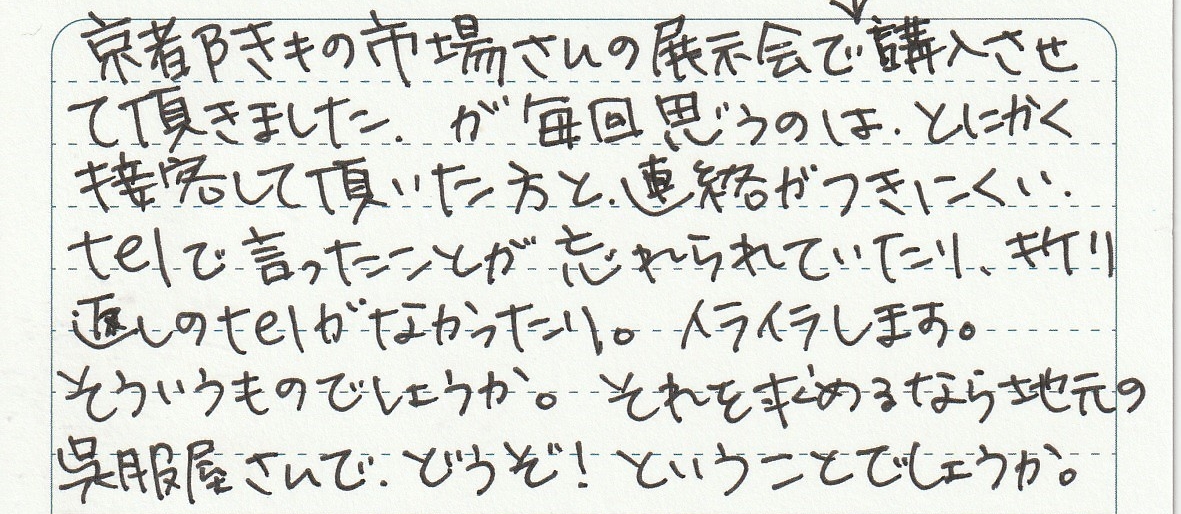 京都きもの市場さんの展示会で購入させ
て頂きました. が毎回思うのは. とにかく
接客して頂いた方と. 連絡がつきにくい.
telで言ったことが忘れられていたり、折り
返しのtelがなかったり。 イライラします。
そういうものでしょうか。 それを求めるなら地元の
呉服屋さんで. どうぞ! ということでしょうか。